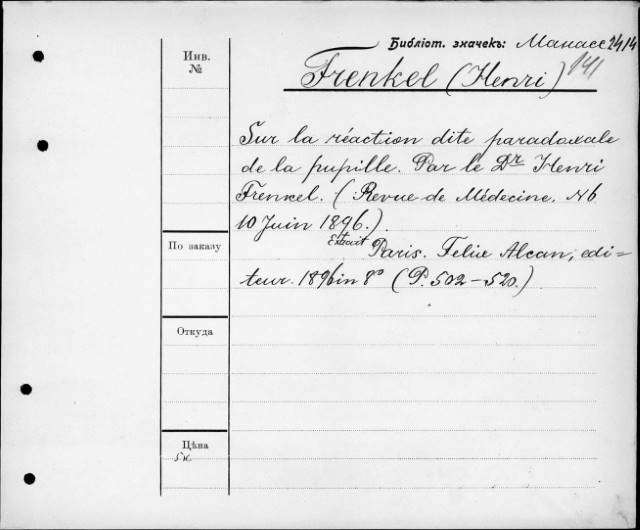 Библіот. значекъ: Манасс 2414
141
Инв.
№
Frenkel (Henri)
Sur la réaction dite paradoxale
de la pupille. Par le Dr Henri
Frenkel. (Revue de Médecine. № 6
10 Juin 1896.)
По заказу
Extrait Paris. Felix Alcan, edi=
teur. 1896 in 8° (P. 502-520.)
Откуда
Цѣна
5к